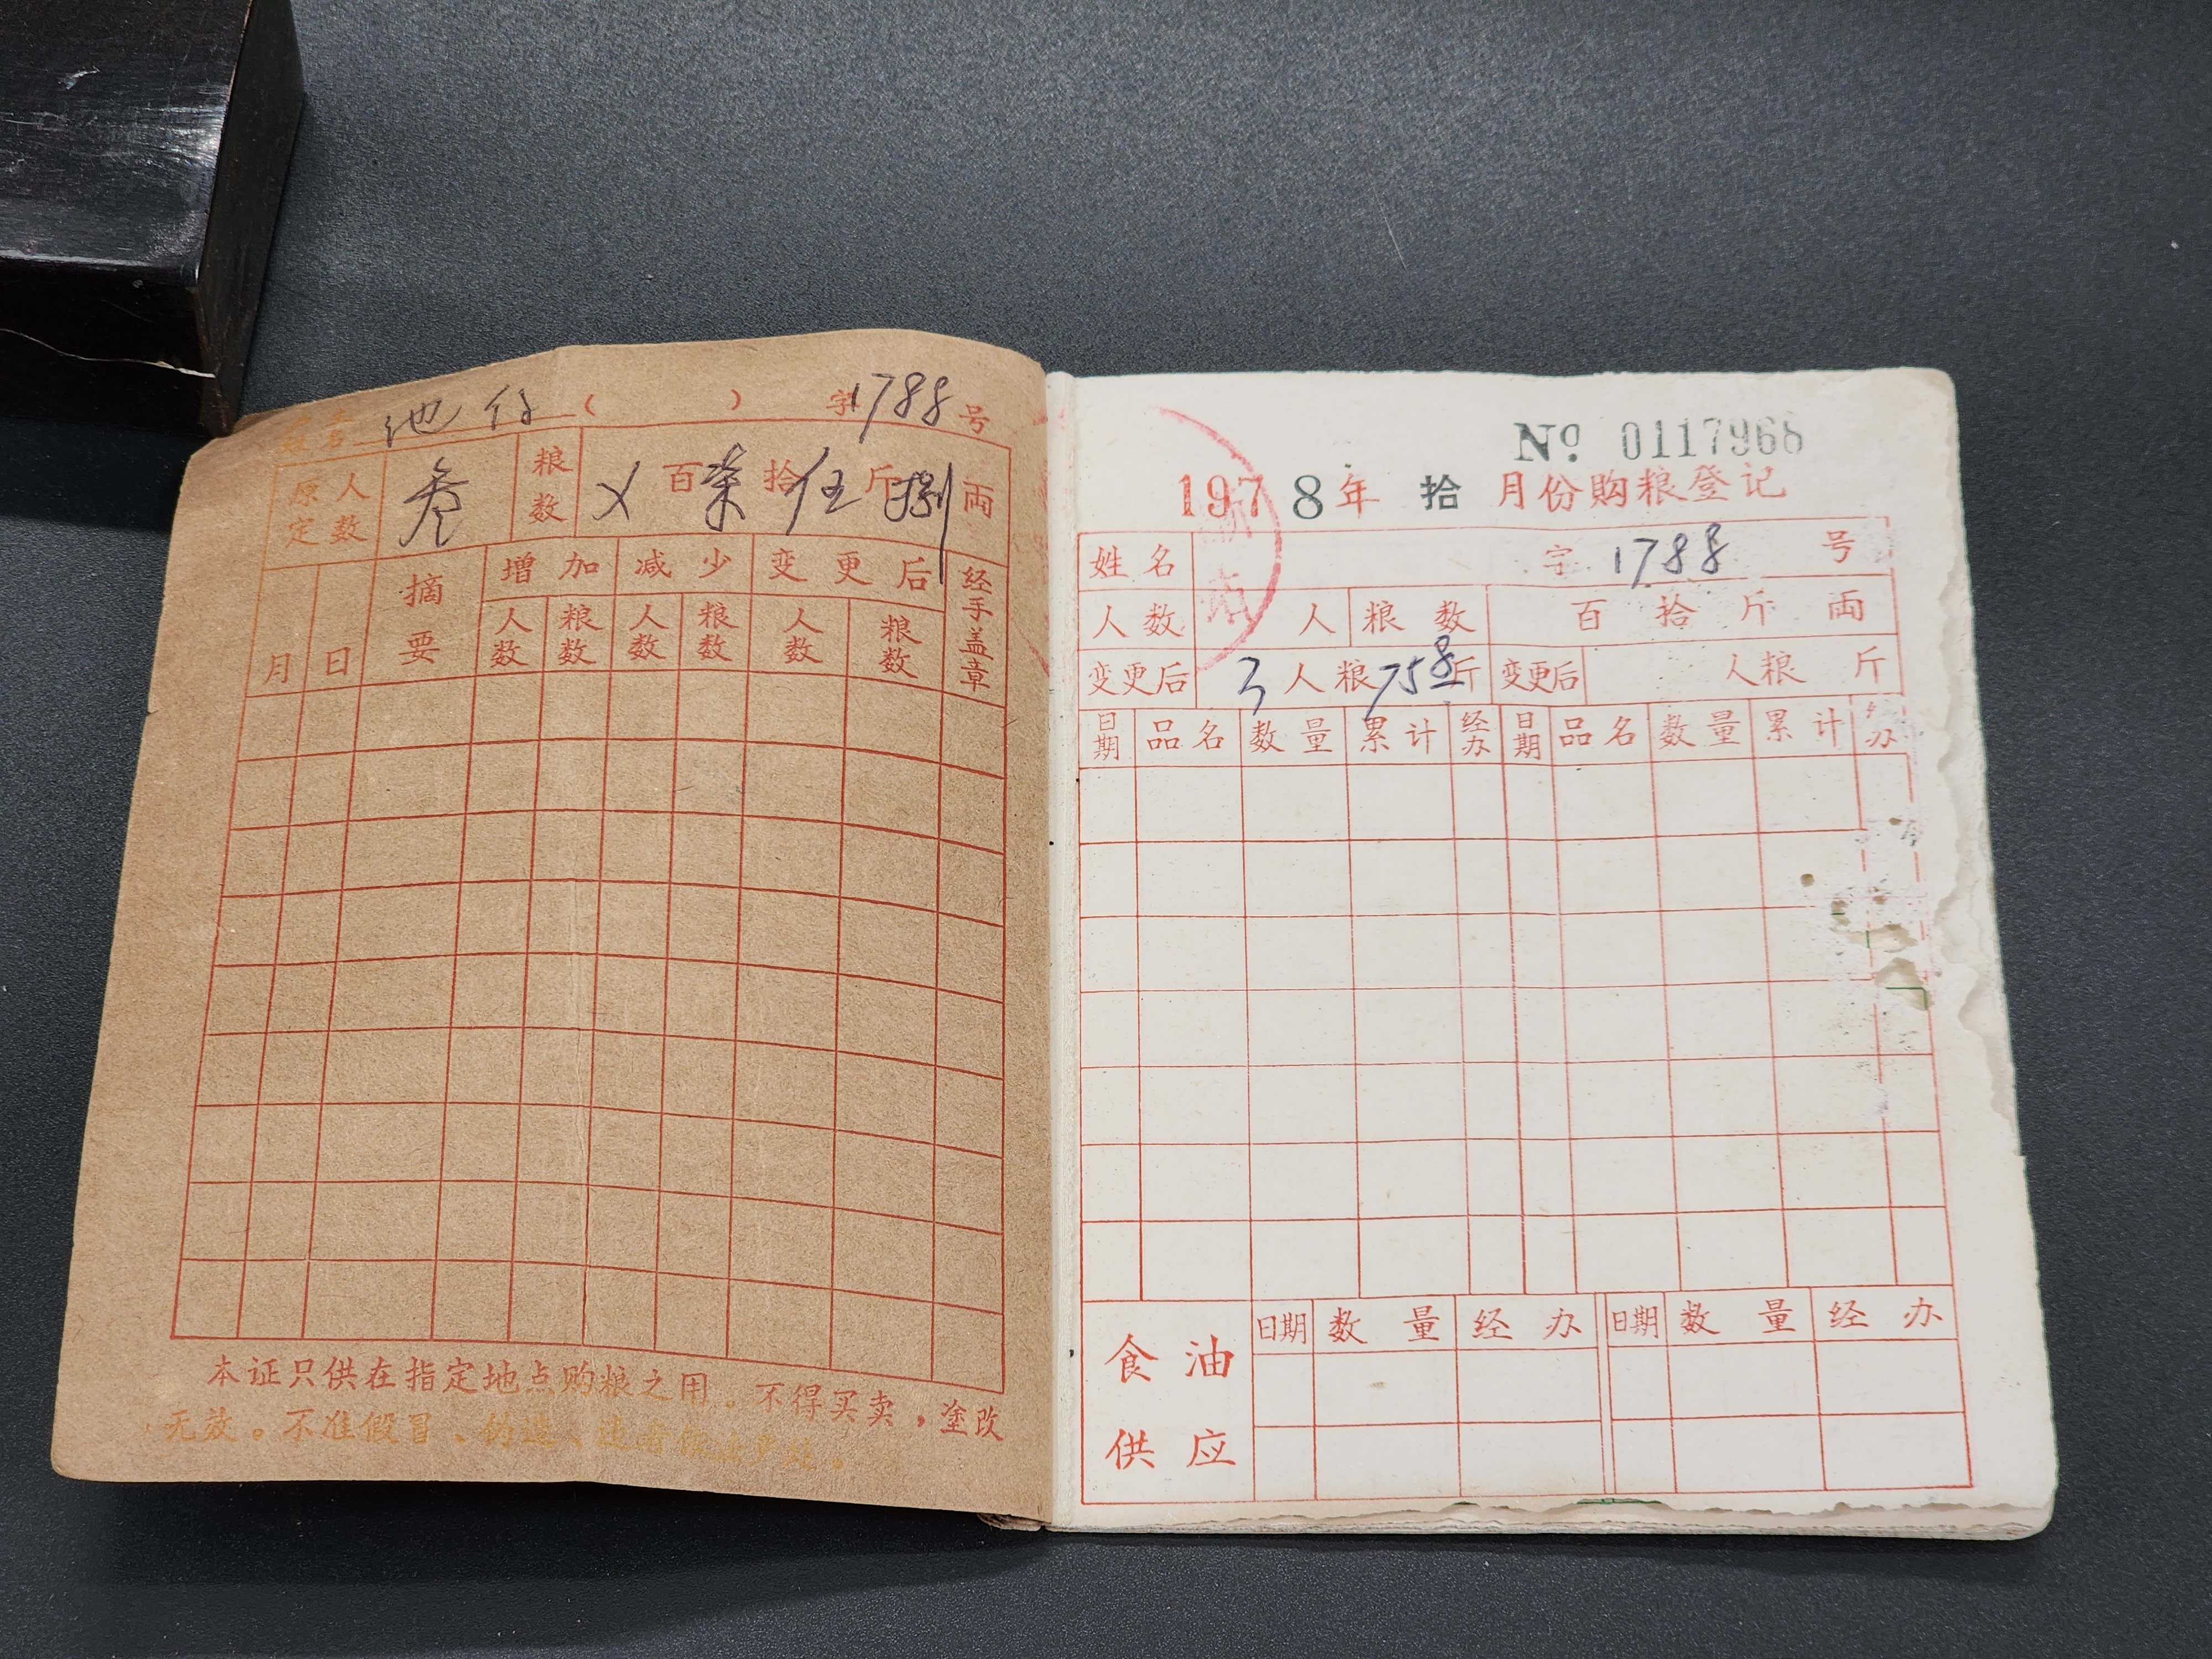 姓名 池仔 ( ) 字1788号
原定人数 叁 粮数 乂百柒拾伍斤捌両
月 日 摘要 增加 减少 变更后 经手盖章
人数 粮数 人数 粮数 人数 粮数
本证只供在指定地点购粮之用。不得买卖，塗改
无效。不准假冒、伪造、违者依法严处。
№ 0117968
1978年 拾 月份购粮登记
姓名 字 1788 号
人数 人 粮数 百 拾 斤 両
变更后 3人粮758斤 变更后 人粮 斤
日期 品名 数量 累计 经办 日期 品名 数量 累计 经办
食油供应 日期 数量 经办 日期 数量 经办